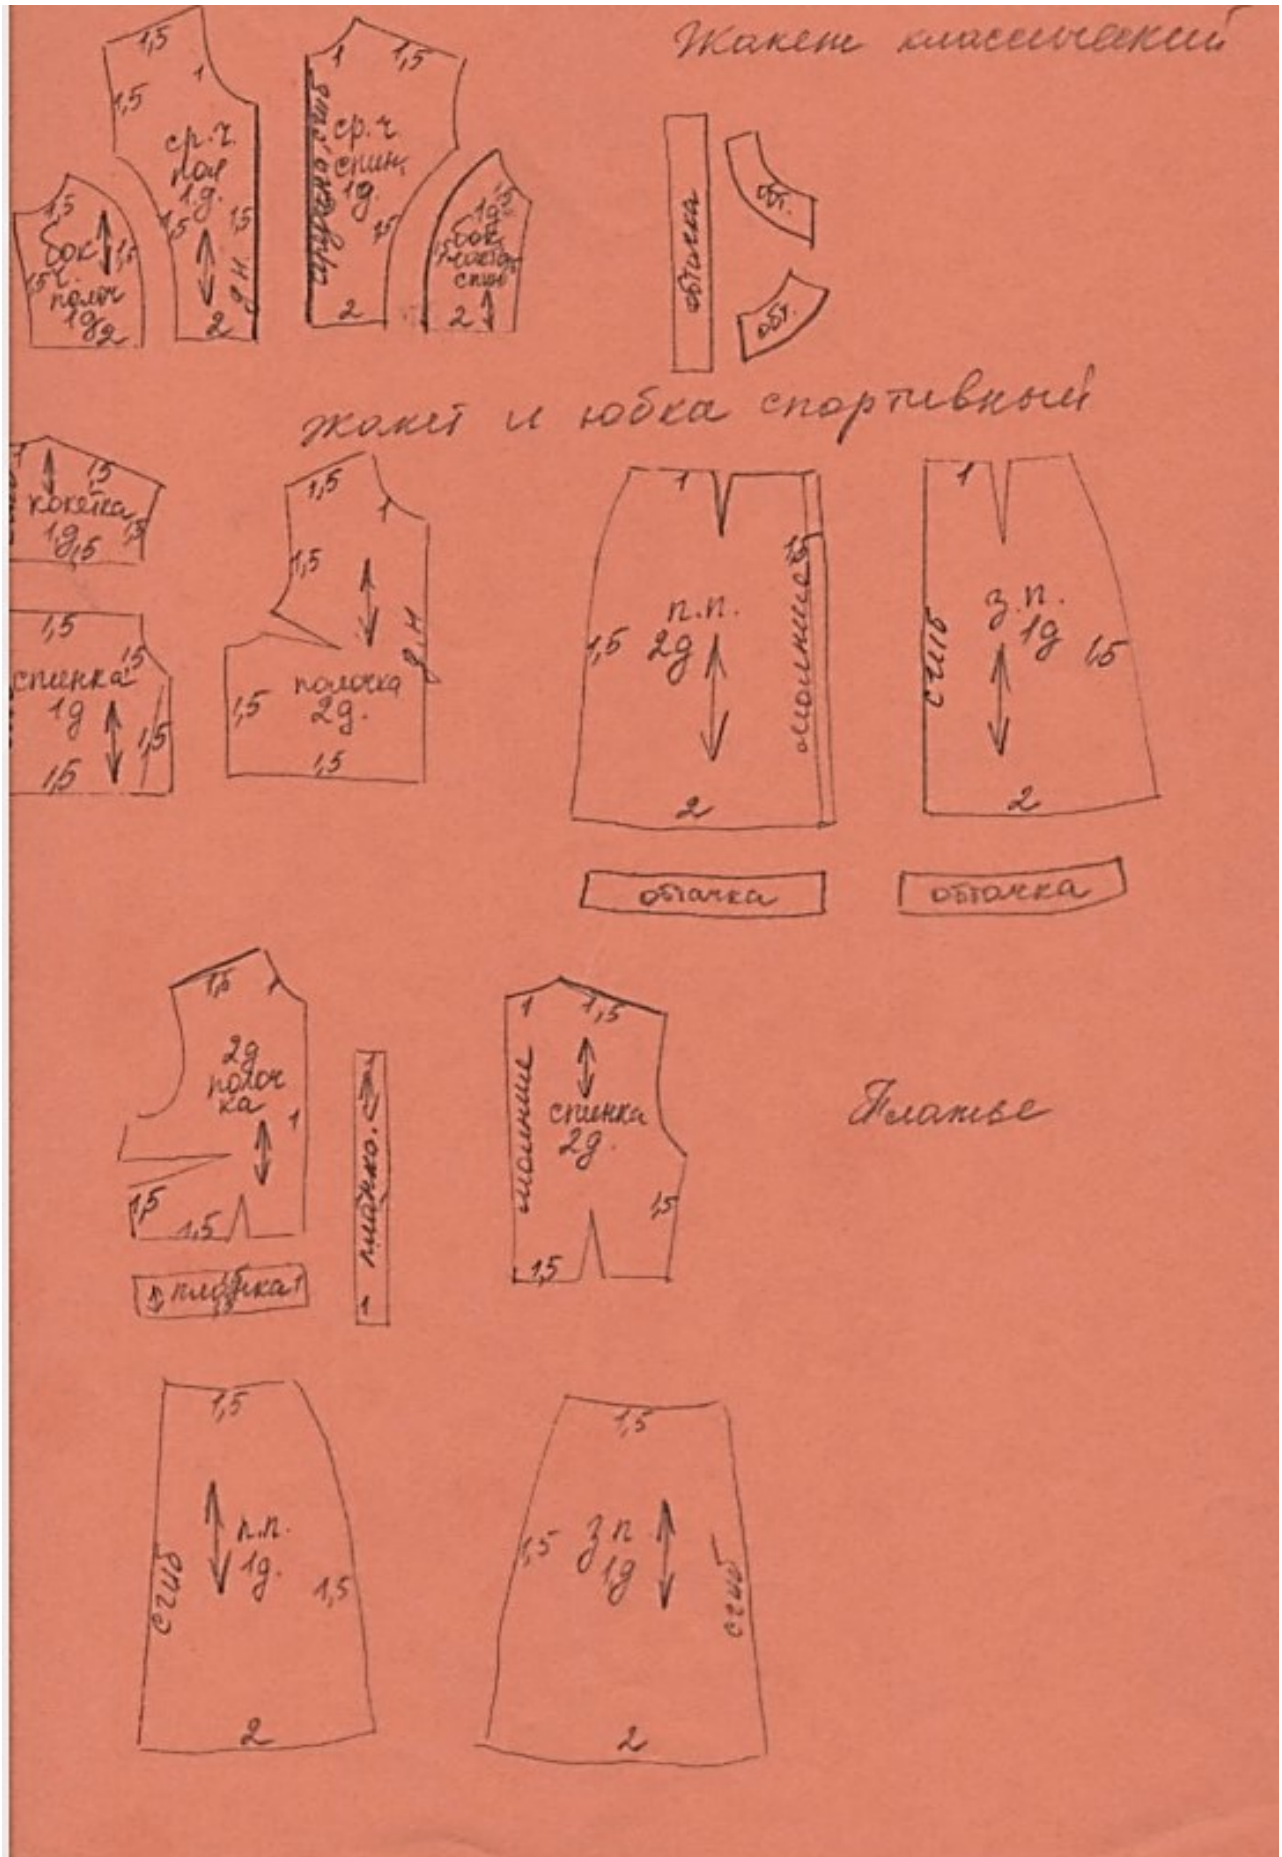 Жакет классический
1,5
1
1,5
ср.ч.
пол
1д.
1,5
1,5
2
1
1,5
ср.ч.
спин.
1д.
1,5
2
1,5
бок
ч.
полоч
1д
1,5
1,5
2
1,5
1д
бок
спин
2
обтачка
обт.
обт.
жакет и юбка спортивный
1
1,5
кокетка
1д
1,5
1,5
1,5
1,5
спинка
1д
1,5
1,5
1,5
1
1,5
полочка
2д.
1,5
1,5
1
п.п.
2д
1,5
1,5
молние
2
1
з.п.
1д
сгиб
1,5
2
обтачка
обтачка
1,5
1
2д
полоч
ка
1
1,5
1,5
планка
1
планка
1
1
1
1,5
молние
спинка
2д.
1,5
1,5
Платье
1,5
п.п.
1д.
сгиб
1,5
2
1,5
1,5
з п
1д
сгиб
2